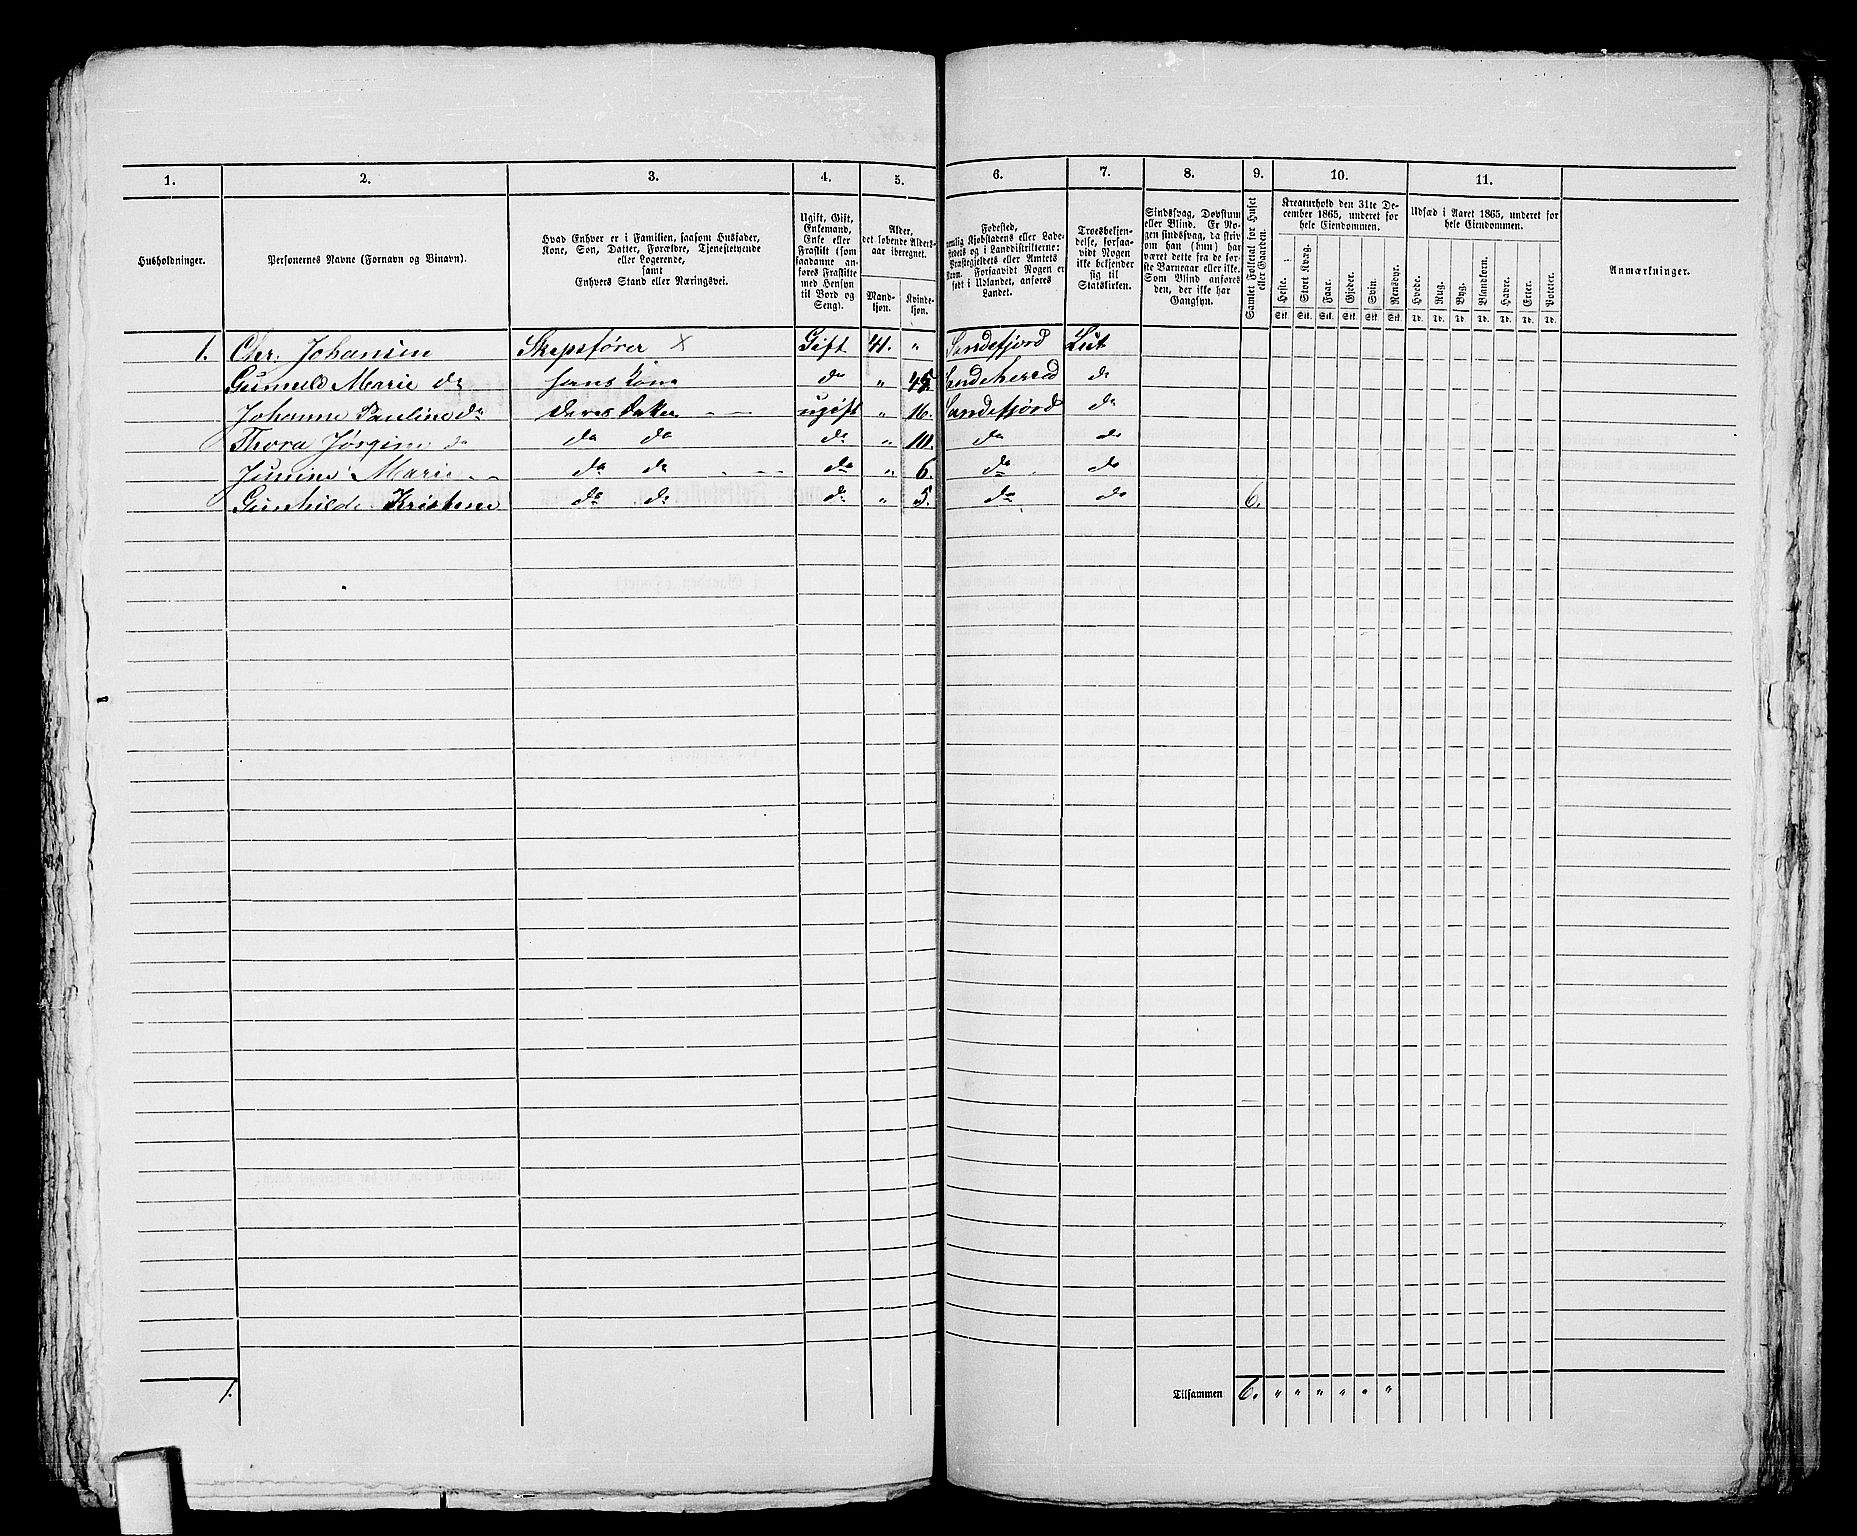 1. 2. 3. 4. 5. 6. 7. 8. 9. 10. 11.
Husholdninger.
Personernes Navne (Fornavn og Binavn).
Hvad Enhver er i Familien, saasom Husfader,
Kone, Søn, Datter, Forældre, Tjenestetyende
eller Logerende,
samt
Enhvers Stand eller Næringsvei.
Ugift, Gift,
Enkemand,
Enke eller
Fraskilt (som
saadanne an-
føres Fraskilte
med Hensyn
til Bord og
Seng).
Alder,
det løbende Alders-
aar iberegnet.
Mand-
kjøn.
Kvinde-
kjøn.
Fødested,
nemlig Kjøbstadens eller Lade-
stedets og i Landdistrikterne:
Præstegjeldets eller Amtets
Navn. Forsaavidt Nogen er
født i Udlandet, anføres
Landet.
Troesbekjen-
delse, forsaa-
vidt Nogen
ikke bekjender
sig til
Statskirken.
Sindssvag, Døvstum
eller Blind. Er No-
gen sindssvag, da skriv
om han (hun) har
været dette fra de før-
ste Barneaar eller ikke.
Som Blind anføres
den, der ikke har
Gangsyn.
Samlet Folketal for Huset
eller Gaarden.
Kreaturhold den 31te De-
cember 1865, underet for
hele Eiendommen.
Heste. Stort Kvæg. Faar. Gjeder. Svin. Rensdyr.
Stk. Stk. Stk. Stk. Stk. Stk.
Udsæd i Aaret 1865, underet for
hele Eiendommen.
Hvede. Rug. Byg. Blandkorn. Havre. Erter. Poteter.
Td. Td. Td. Td. Td. Td. Td.
Anmærkninger.
1. Chr. Johansen Skepsfører X Gift 41. " Sandefjord Lut
Gunnild Marie do hans Kone do " 45 Sandeherred do
Johanne Pauline do deres Datter ugift " 16. Sandefjord do
Thora Jørgine do do do do " 10. do do
Marie do do do " 6. do do
Gunhilde Kristine do do do " 5. do do 6.
1. Tilsammen 6. " " " " " "